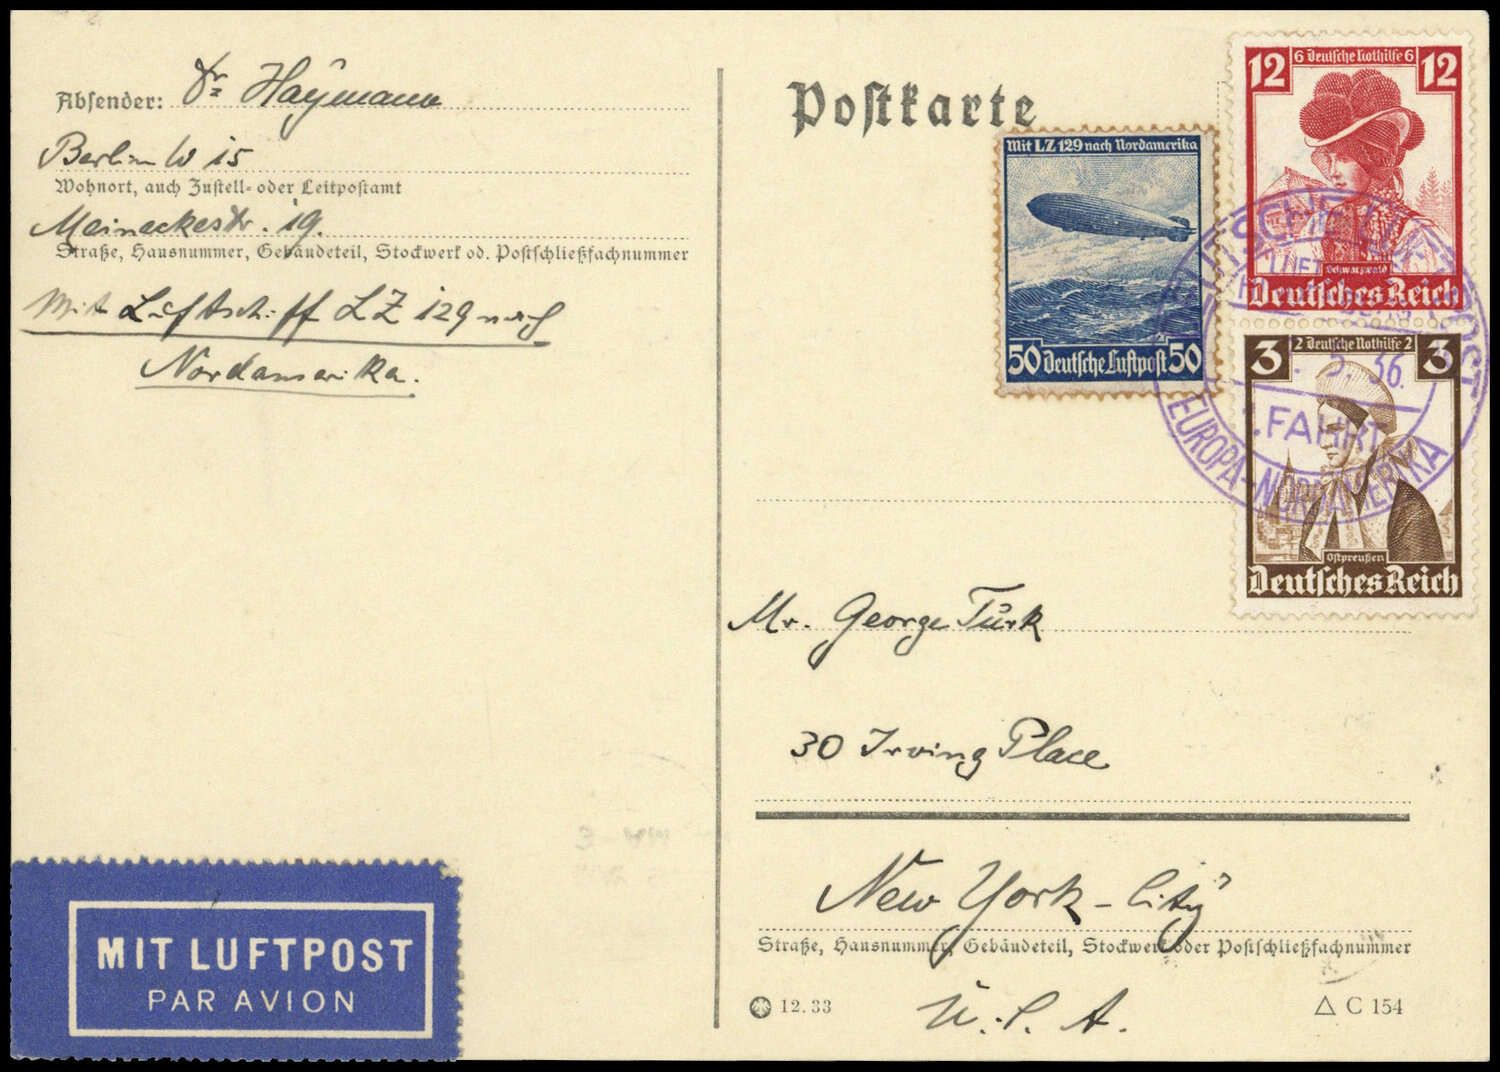 Absender: Dr. Haymann
Berlin W 15
Wohnort, auch Zustell- oder Leitpostamt
Meineckestr. 19.
Straße, Hausnummer, Gebäudeteil, Stockwerk od. Postschließfachnummer
Mit Luftschiff LZ 129 nach
Nordamerika.
MIT LUFTPOST
PAR AVION
Postkarte
Mit LZ 129 nach Nordamerika
50 Deutsche Luftpost 50
12 6 Deutsche Nothilfe 6 12
Schwarzwald
Deutsches Reich
3 2 Deutsche Nothilfe 2 3
Ostpreußen
Deutsches Reich
DEUTSCHE LUFTPOST
5. 36.
FAHRT
EUROPA-NORDAMERIKA
Mr. George Türk
30 Irving Place
New York-City
Straße, Hausnummer, Gebäudeteil, Stockwerk oder Postschließfachnummer
U.S.A.
12.33
C 154